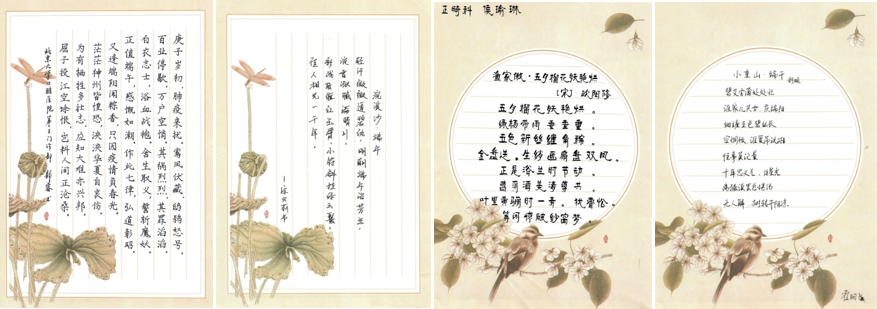 庚子岁初，肺疫来扰，雾风伏藏，鸱鸮怒号。
百业停歇，万户空悄，其祸烈烈，其罪滔滔，
白衣忠士，浴血战袍，舍生取义，誓斩魔妖，
正值端午，感慨如潮，作此七律，弘道彰昭。
又逢端阳闻粽香，只因疫情负春光。
茫茫神州皆惶恐，泱泱华夏自哀伤。
为有牺牲多壮志，应知大难亦兴邦。
屈子投江空 恨，岂料人间正沧桑。
北京大学口腔医院第二门诊部
浣溪沙 端午
轻汗微微透碧纨，明朝端午浴芳兰。
流香涨腻满晴川。
彩线轻缠红玉臂，小符斜挂绿云鬟。
佳人相见一千年。
正畸科 侯瑜琳
渔家傲·五月榴花妖艳烘
（宋）欧阳修
五月榴花妖艳烘
绿杨带雨垂垂重。
五色新丝缠角粽。
金盘送。生绡画扇盘双凤。
正是浴兰时节动。
菖蒲酒美清尊共。
叶里黄鹂时一弄。犹瞢忪。
等闲惊破纱窗梦。
小重山·端午
舒頔
碧艾香蒲处处忙
谁家儿共女，庆端阳
细缠五色臂丝长
空惆怅，谁复吊沅湘
往事莫论量
千年忠义气，日星光
离骚读罢总堪伤
无人解，树转午阴凉